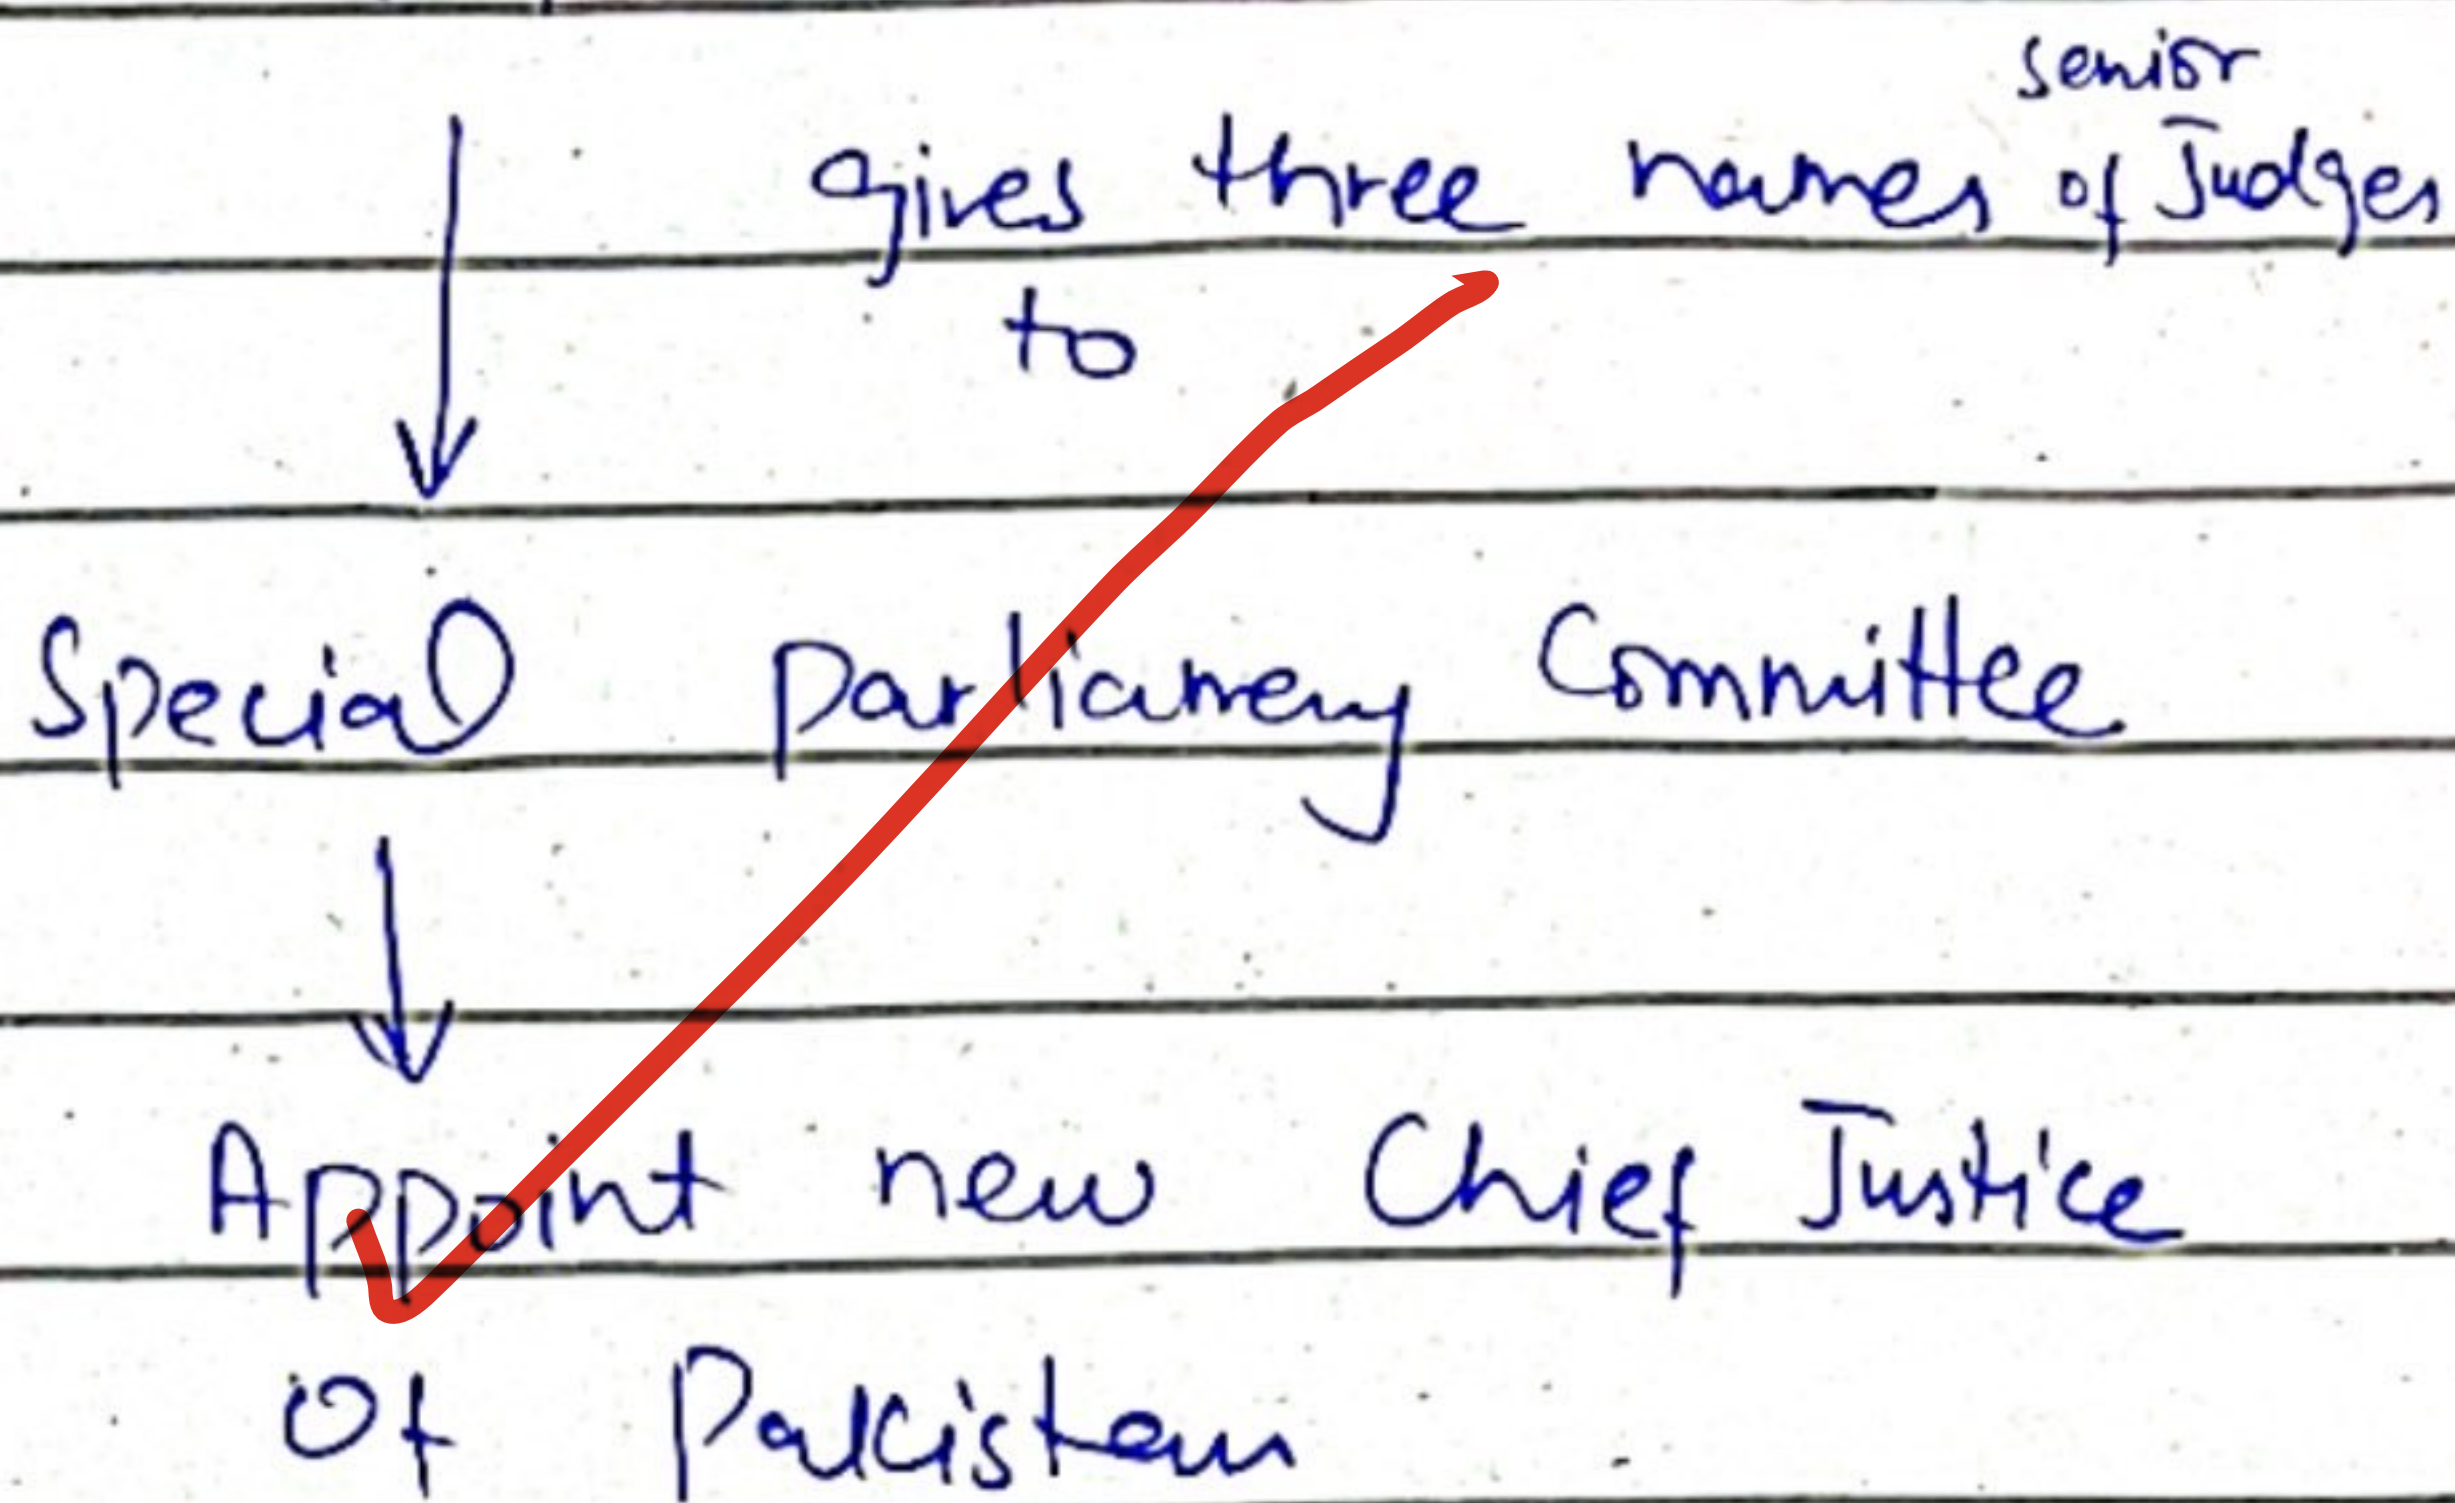 senior
gives three names of Judges
to
Special Parliameny Committee
Appoint new Chief Justice
Of Pakistan